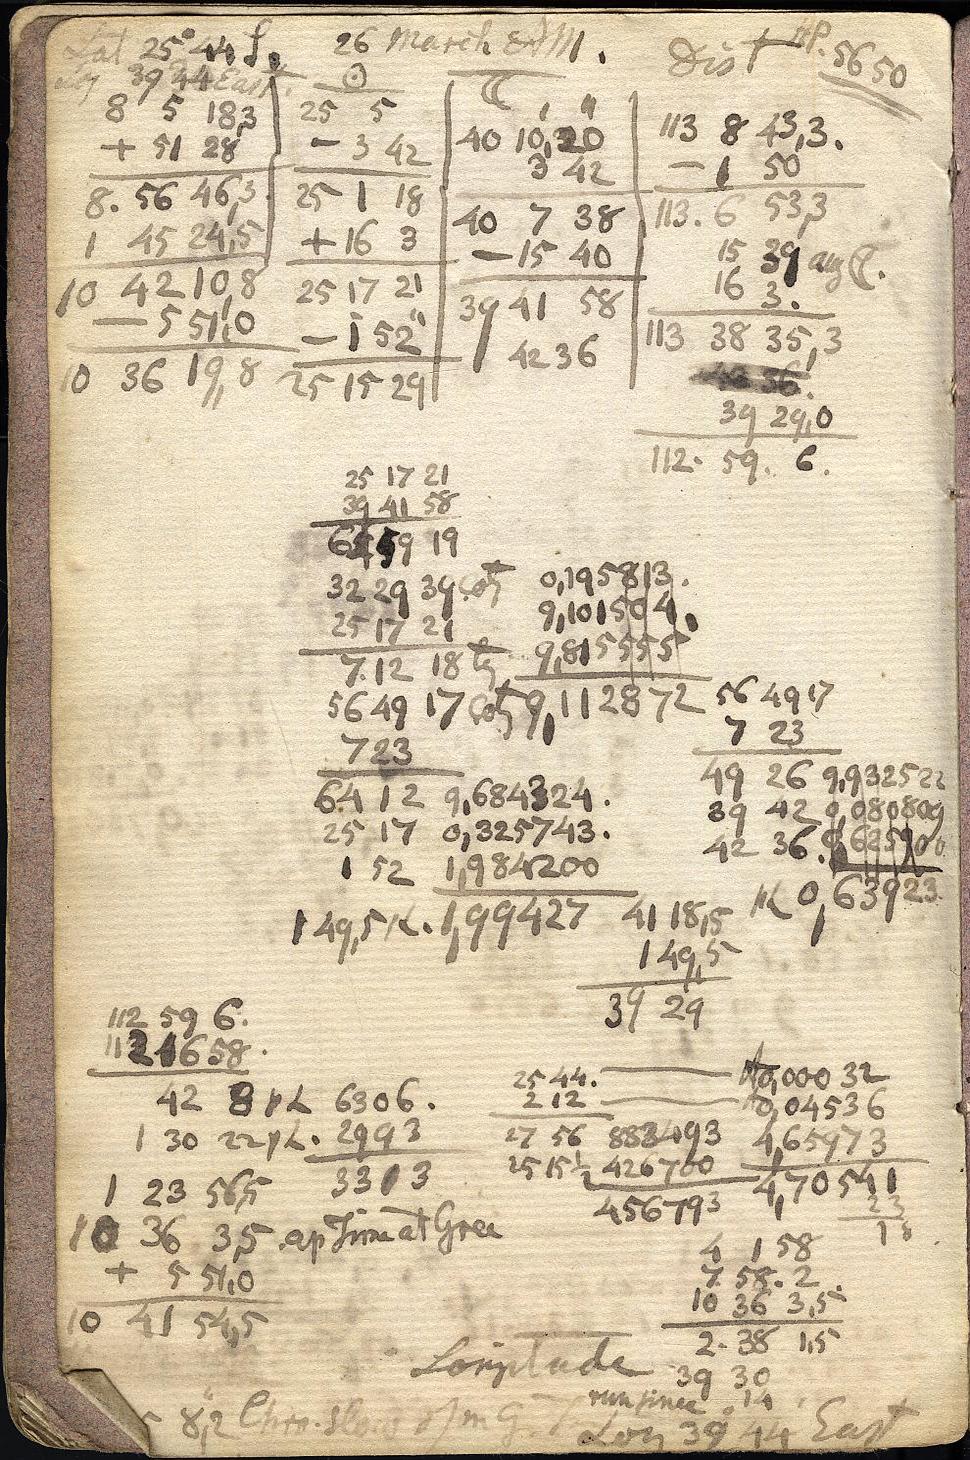 Lat 25° 44 S.
26 March & AM.
Dist
HP. 5650
39 44 East.
8 5 18,3
+ 51 28
8. 56 46,3
1 45 24,5
10 42 10,8
- 5 51,0
10 36 19,8
☉
25 5
- 3 42
25 1 18
+ 16 3
25 17 21
- 1 52"
25 15 29
☾
40 10,20
3 42
40 7 38
- 15 40
39 41 58
42 36
113 8 43,3.
- 1 50
113. 6 53,3
15 39 aug ☾.
16 3.
113 38 35,3
39 29,0
112. 59. 6.
25 17 21
39 41 58
59 19
32 29 39
25 17 21
7.12 18 tg
56 49 17
7 23
64 12 9,684324.
25 17 0,325743.
1 52 1,984200
1 49,5 1,99427
0,195813.
9,101504
9,815555
9,112872
56 49 17
7 23
49 26 9,932522
39 42 0,080809
42 36.
0,63923
41 18,5
1 49,5
39 29
112 59 6.
16 58.
42 8 pL 6306.
1 30 22 pL. 2993
3313
1 23 56,5
10 36 3,5 .ap Time at Gree
+ 5 51,0
10 41 54,5
25 44.
0,00032
2 12
0,04536
27 56 883493 4,65973
25 15½ 426700
456793
4,70541
23
18
4 1 58
7 58. 2
10 36 3,5
2. 38 1,5
Longitude
39 30
run since . 14
8,2
Lon 39 44 East